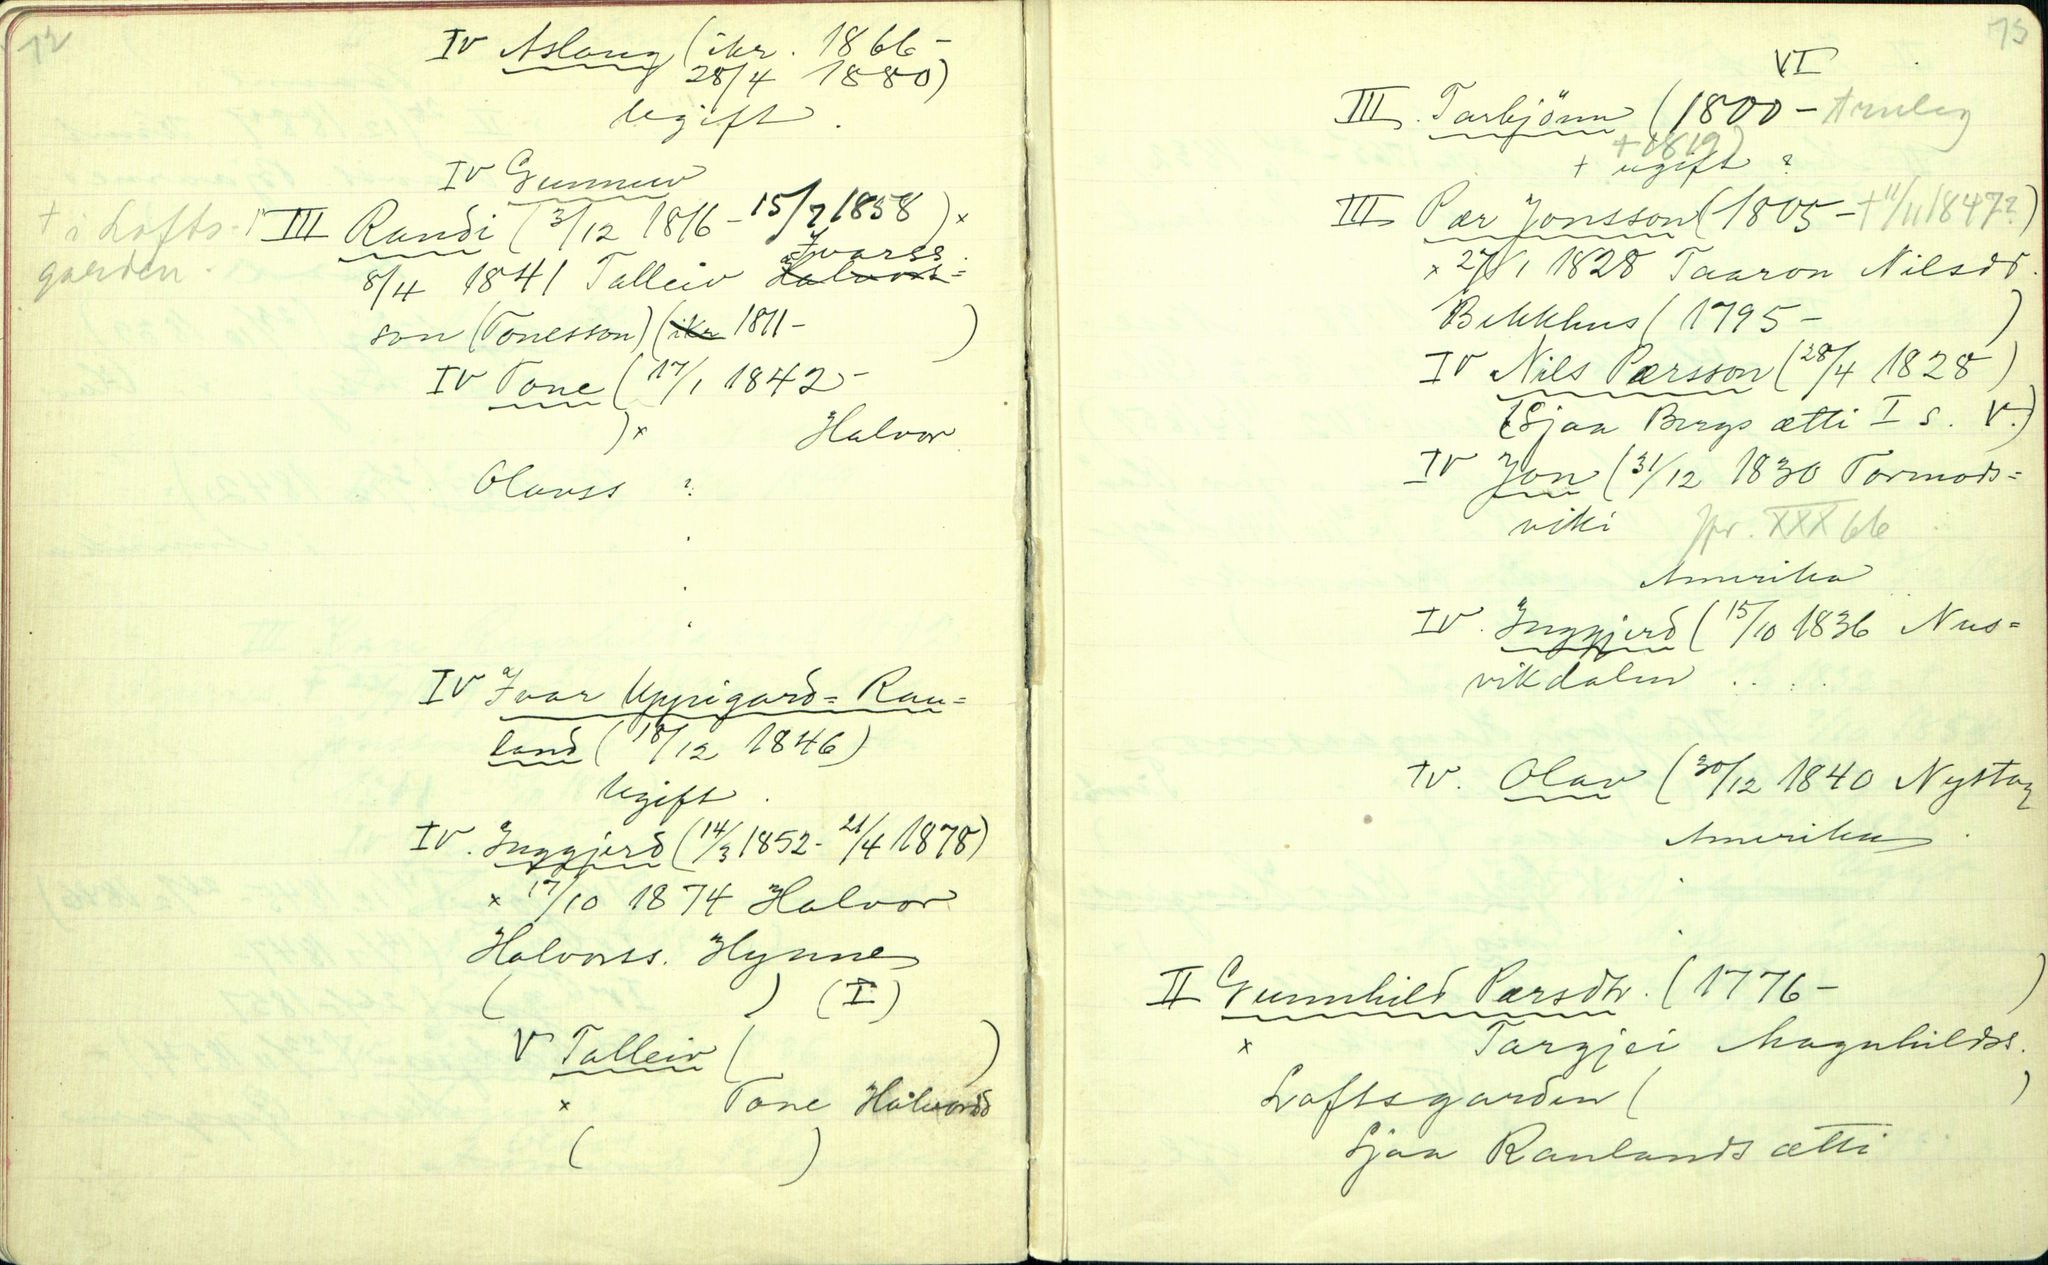 72
IV Aslaug (ikr. 1866-
28/4 1880)
Ugift.
IV Gunnuv
III Randi (3/12 1816 - 15/7 1858) ×
+ i Lofts-
garden.
8/4 1841 Talleiv Halvors= Ivarss.
son (Tonesson) (ikr 1811- )
IV Tone (17/1 1842-
)× Halvor
Olavss ?
IV Ivar Uppigard= Rau=
land (18/12 1846)
Ugift.
IV. Inggjerd (14/3 1852- 21/4 1878)
× 17/10 1874 Halvor
Halvorss. Hynne
( ) (I)
V Talleiv ( )
× Tone Halvorsd
( )
73
VI
III. Tarbjönn (1800 -
+ 1819)
+ ugift ?
III Pær Jonsson (1805 - + 11/11 1847?)
× 27/1 1828 Taaron Nilsdt.
Bekkhus (1795 - )
IV Nils Pærsson (28/4 1828)
(Sjaa Bergs ætti I s. V.)
IV Jon (31/12 1830 Tormods=
viki Jfr. XXX 66
Amerika
IV. Inggjerd (15/10 1836 Nus=
vikdalen . . . .
IV. Olav (30/12 1840 Nystog
Amerika.
II Gunnhild Pærsdtr. (1776 - )
× Targjei Magnhildss.
Loftsgarden ( )
Sjaa Raulands ætti